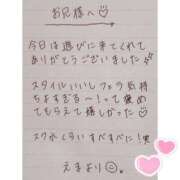 お兄様へ♡
今日は遊びに来てくれて
ありがとうございました
スタイルいいしフェラ気持
ちよすぎる〜!って褒め
てもらえて嬉しかった♡
スクれくらいすべすべに!笑
えまより☺